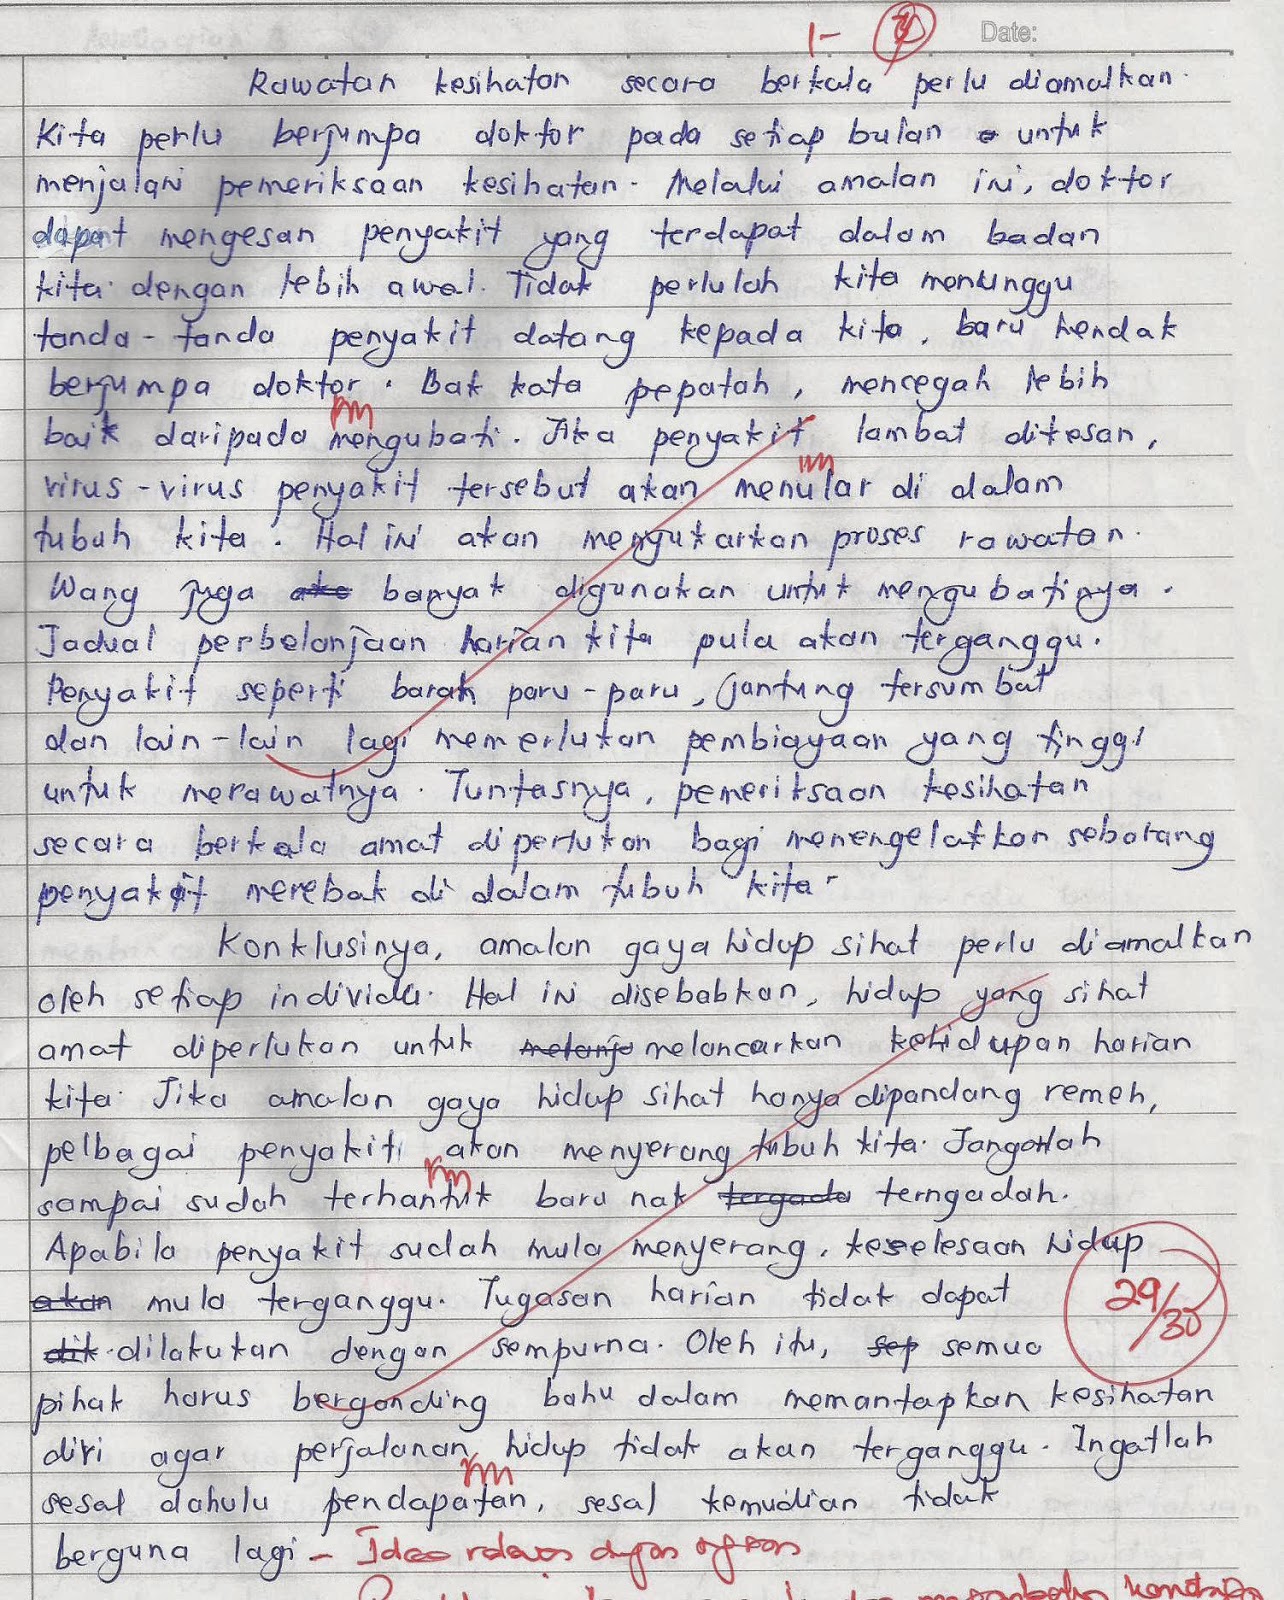 1-
Date:
Rawatan kesihatan secara berkala perlu diamalkan.
Kita perlu berjumpa doktor pada setiap bulan untuk
menjalani pemeriksaan kesihatan. Melalui amalan ini, doktor
dapat mengesan penyakit yang terdapat dalam badan
kita dengan lebih awal. Tidak perlulah kita menunggu
tanda-tanda penyakit datang kepada kita, baru hendak
berjumpa doktor. Bak kata pepatah, mencegah lebih
baik daripada mengubati. Jika penyakit lambat dikesan,
virus-virus penyakit tersebut akan menular di dalam
tubuh kita. Hal ini akan mengukarkan proses rawatan.
Wang juga ake banyak digunakan untuk mengubatinya.
Jadual perbelanjaan harian kita pula akan terganggu.
Penyakit seperti barah paru-paru, jantung tersumbat
dan lain-lain lagi memerlukan pembiayaan yang tinggi
untuk merawatnya. Tuntasnya, pemeriksaan kesihatan
secara berkala amat diperlukan bagi menengelakkan sebarang
penyakit merebak di dalam tubuh kita.
Konklusinya, amalan gaya hidup sihat perlu diamalkan
oleh setiap individu. Hal ini disebabkan, hidup yang sihat
amat diperlukan untuk melanja melancarkan kehidupan harian
kita. Jika amalan gaya hidup sihat hanya dipandang remeh,
pelbagai penyakit akan menyerang tubuh kita. Janganlah
sampai sudah terhantuk baru nak tergada terngadah.
Apabila penyakit sudah mula menyerang, keselesaan hidup
akan mula terganggu. Tugasan harian tidak dapat
dik dilakukan dengan sempurna. Oleh itu, sep semua
pihak harus berganding bahu dalam memantapkan kesihatan
diri agar perjalanan hidup tidak akan terganggu. Ingatlah
sesal dahulu pendapatan, sesal kemudian tidak
berguna lagi
29/30
- Idea relevan dengan